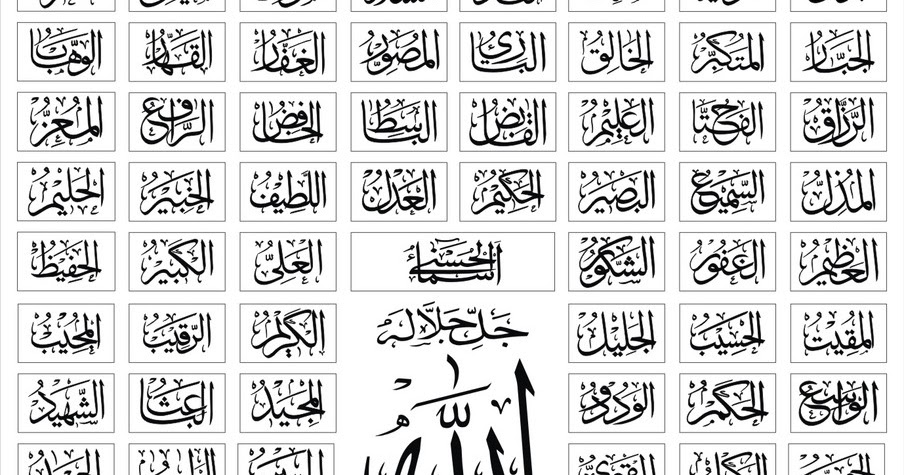 الجَبَّارُ المُتَكَبِّرُ الخَالِقُ البَارِيُ المُصَوِّرُ الغَفَّارُ القَهَّارُ الوَهَّابُ
الرَّزَّاقُ الفَتَّاحُ العَلِيْمُ القَابِضُ البَاسِطُ الخَافِضُ الرَّافِعُ المُعِزُّ
المُذِلُّ السَّمِيْعُ البَصِيْرُ الحَكِيْمُ العَدْلُ اللَّطِيْفُ الخَبِيْرُ الحَلِيْمُ
العَظِيْمُ الغَفُوْرُ الشَّكُوْرُ أسماء الحسنى العَلِيُّ الكَبِيْرُ الحَفِيْظُ
المُقِيْتُ الحَسِيْبُ الجَلِيْلُ جَلَّ جَلَالُهُ الكَرِيْمُ الرَّقِيْبُ المُجِيْبُ
الوَاسِعُ الحَكَمُ الوَدُوْدُ الله المَجِيْدُ البَاعِثُ الشَّهِيْدُ